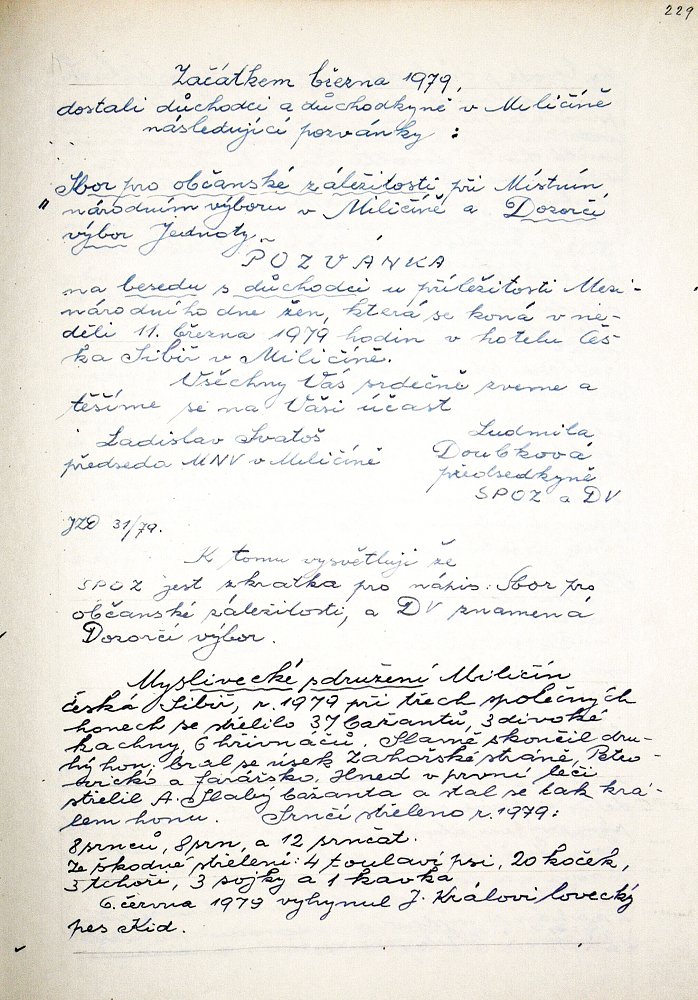 229
Začátkem března 1979,
dostali důchodci a důchodkyně v Miličíně
následující pozvánky :
Sbor pro občanské záležitosti při Místním
" národním výboru v Miličíně a Dozorčí
výbor Jednoty
POZVÁNKA
na besedu s důchodci u příležitosti Mezi-
národního dne žen, která se koná v ne-
děli 11. března 1979 hodin v hotelu Čes-
ka Sibiř v Miličíně.
Všechny Vás srdečně zveme a
těšíme se na Vaši účast
Ladislav Svatoš
předseda MNV v Miličíně
Ludmila
Doubková
předsedkyně
SPOZ a DV
JZD 31/79.
K tomu vysvětluji že
SPOZ jest zkratka pro nápis: Sbor pro
občanské záležitosti, a DV znamená
Dozorčí výbor.
Myslivecké sdružení Miličín
česká Sibiř, r. 1979 při třech společných
honech se střelilo 37 bažantů, 3 divoké
kachny, 6 hřivnáčů. Slavně skončil dru-
hý hon. bral se úsek Zahořské stráně, Petro-
vicko a farářsko. Hned v první leči
střelil A. Slabý bažanta a stal se tak krá-
lem honu. Srnčí střeleno r. 1979:
8 srnců, 8 srn, a 12 srnčat.
Ze škodné střeleni: 4 toulaví psi, 20 koček,
3 tchoři, 3 sojky a 1 kavka
6. června 1979 vyhynul J. Královi lovecký
pes Kid.